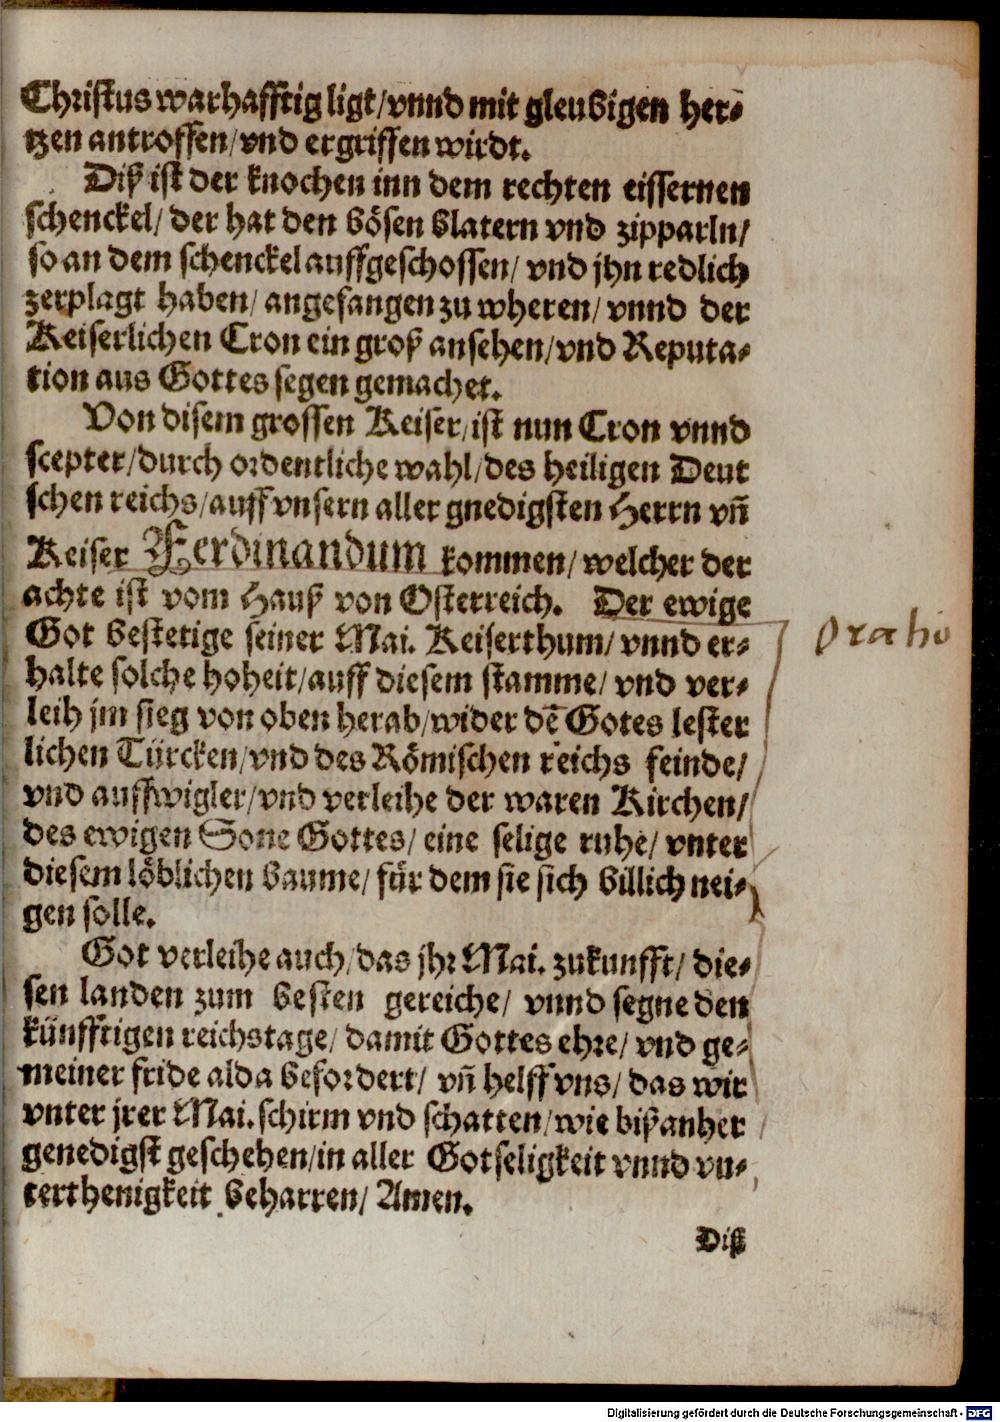 Christus warhafftig ligt/vnnd mit gleubigen her-
tzen antroffen/vnd ergriffen wirdt.
Diß ist der knochen inn dem rechten eissernen
schenckel/ der hat den bösen blatern vnd zipparln/
so an dem schenckel auffgeschossen/ vnd jhn redlich
zerplagt haben/ angefangen zu wheren/ vnnd der
Keiserlichen Cron ein groß ansehen/vnd Reputa-
tion aus Gottes segen gemachet.
Von disem grossen Keiser/ist nun Cron vnnd
scepter/durch ordentliche wahl/des heiligen Deut
schen reichs/auff vnsern aller gnedigsten Herrn vñ
Keiser Ferdinandum kommen/ welcher der
achte ist vom Hauß von Osterreich. Der ewige
Got bestetige seiner Mai. Keiserthum/ vnnd er-
halte solche hoheit/auff diesem stamme/ vnd ver-
leih jm sieg von oben herab/wider dē Gotes lester
lichen Türcken/vnd des Römischen reichs feinde/
vnd auffwigler/vnd verleihe der waren Kirchen/
des ewigen Sone Gottes/ eine selige ruhe/ vnter
diesem löblichen baume/ für dem sie sich billich nei-
gen solle.
Got verleihe auch/das jhr Mai. zukunfft/ die-
sen landen zum besten gereiche/ vnnd segne den
künfftigen reichstage/ damit Gottes ehre/ vnd ge-
meiner fride alda befordert/ vñ helff vns/ das wir
vnter jrer Mai. schirm vnd schatten/wie bißanher
genedigst geschehen/in aller Gotseligkeit vnnd vn-
terthenigkeit beharren/ Amen.
Diß
Oratio
Digitalisierung gefördert durch die Deutsche Forschungsgemeinschaft - DFG